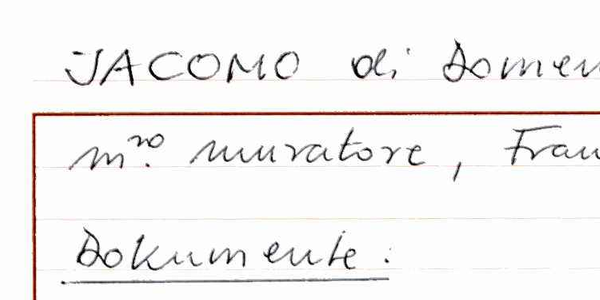 JACOMO di Domen
mro. muratore, Fran
Dokumente: